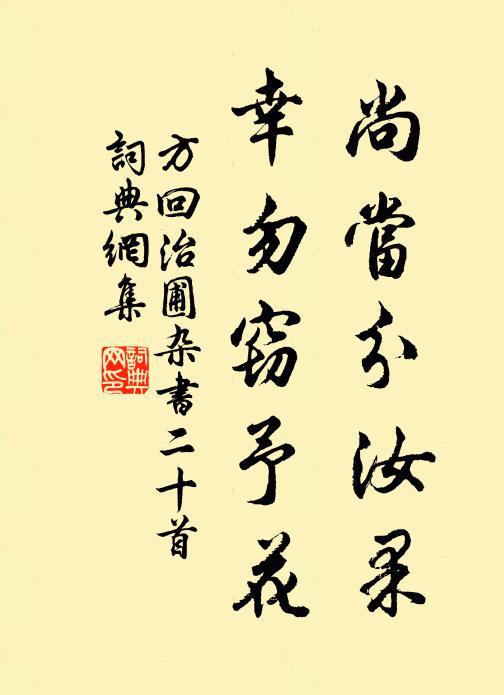 尚當分汝果
幸勿窃予花
方回治圃杂書二十首
詞典網集
詞典
网印